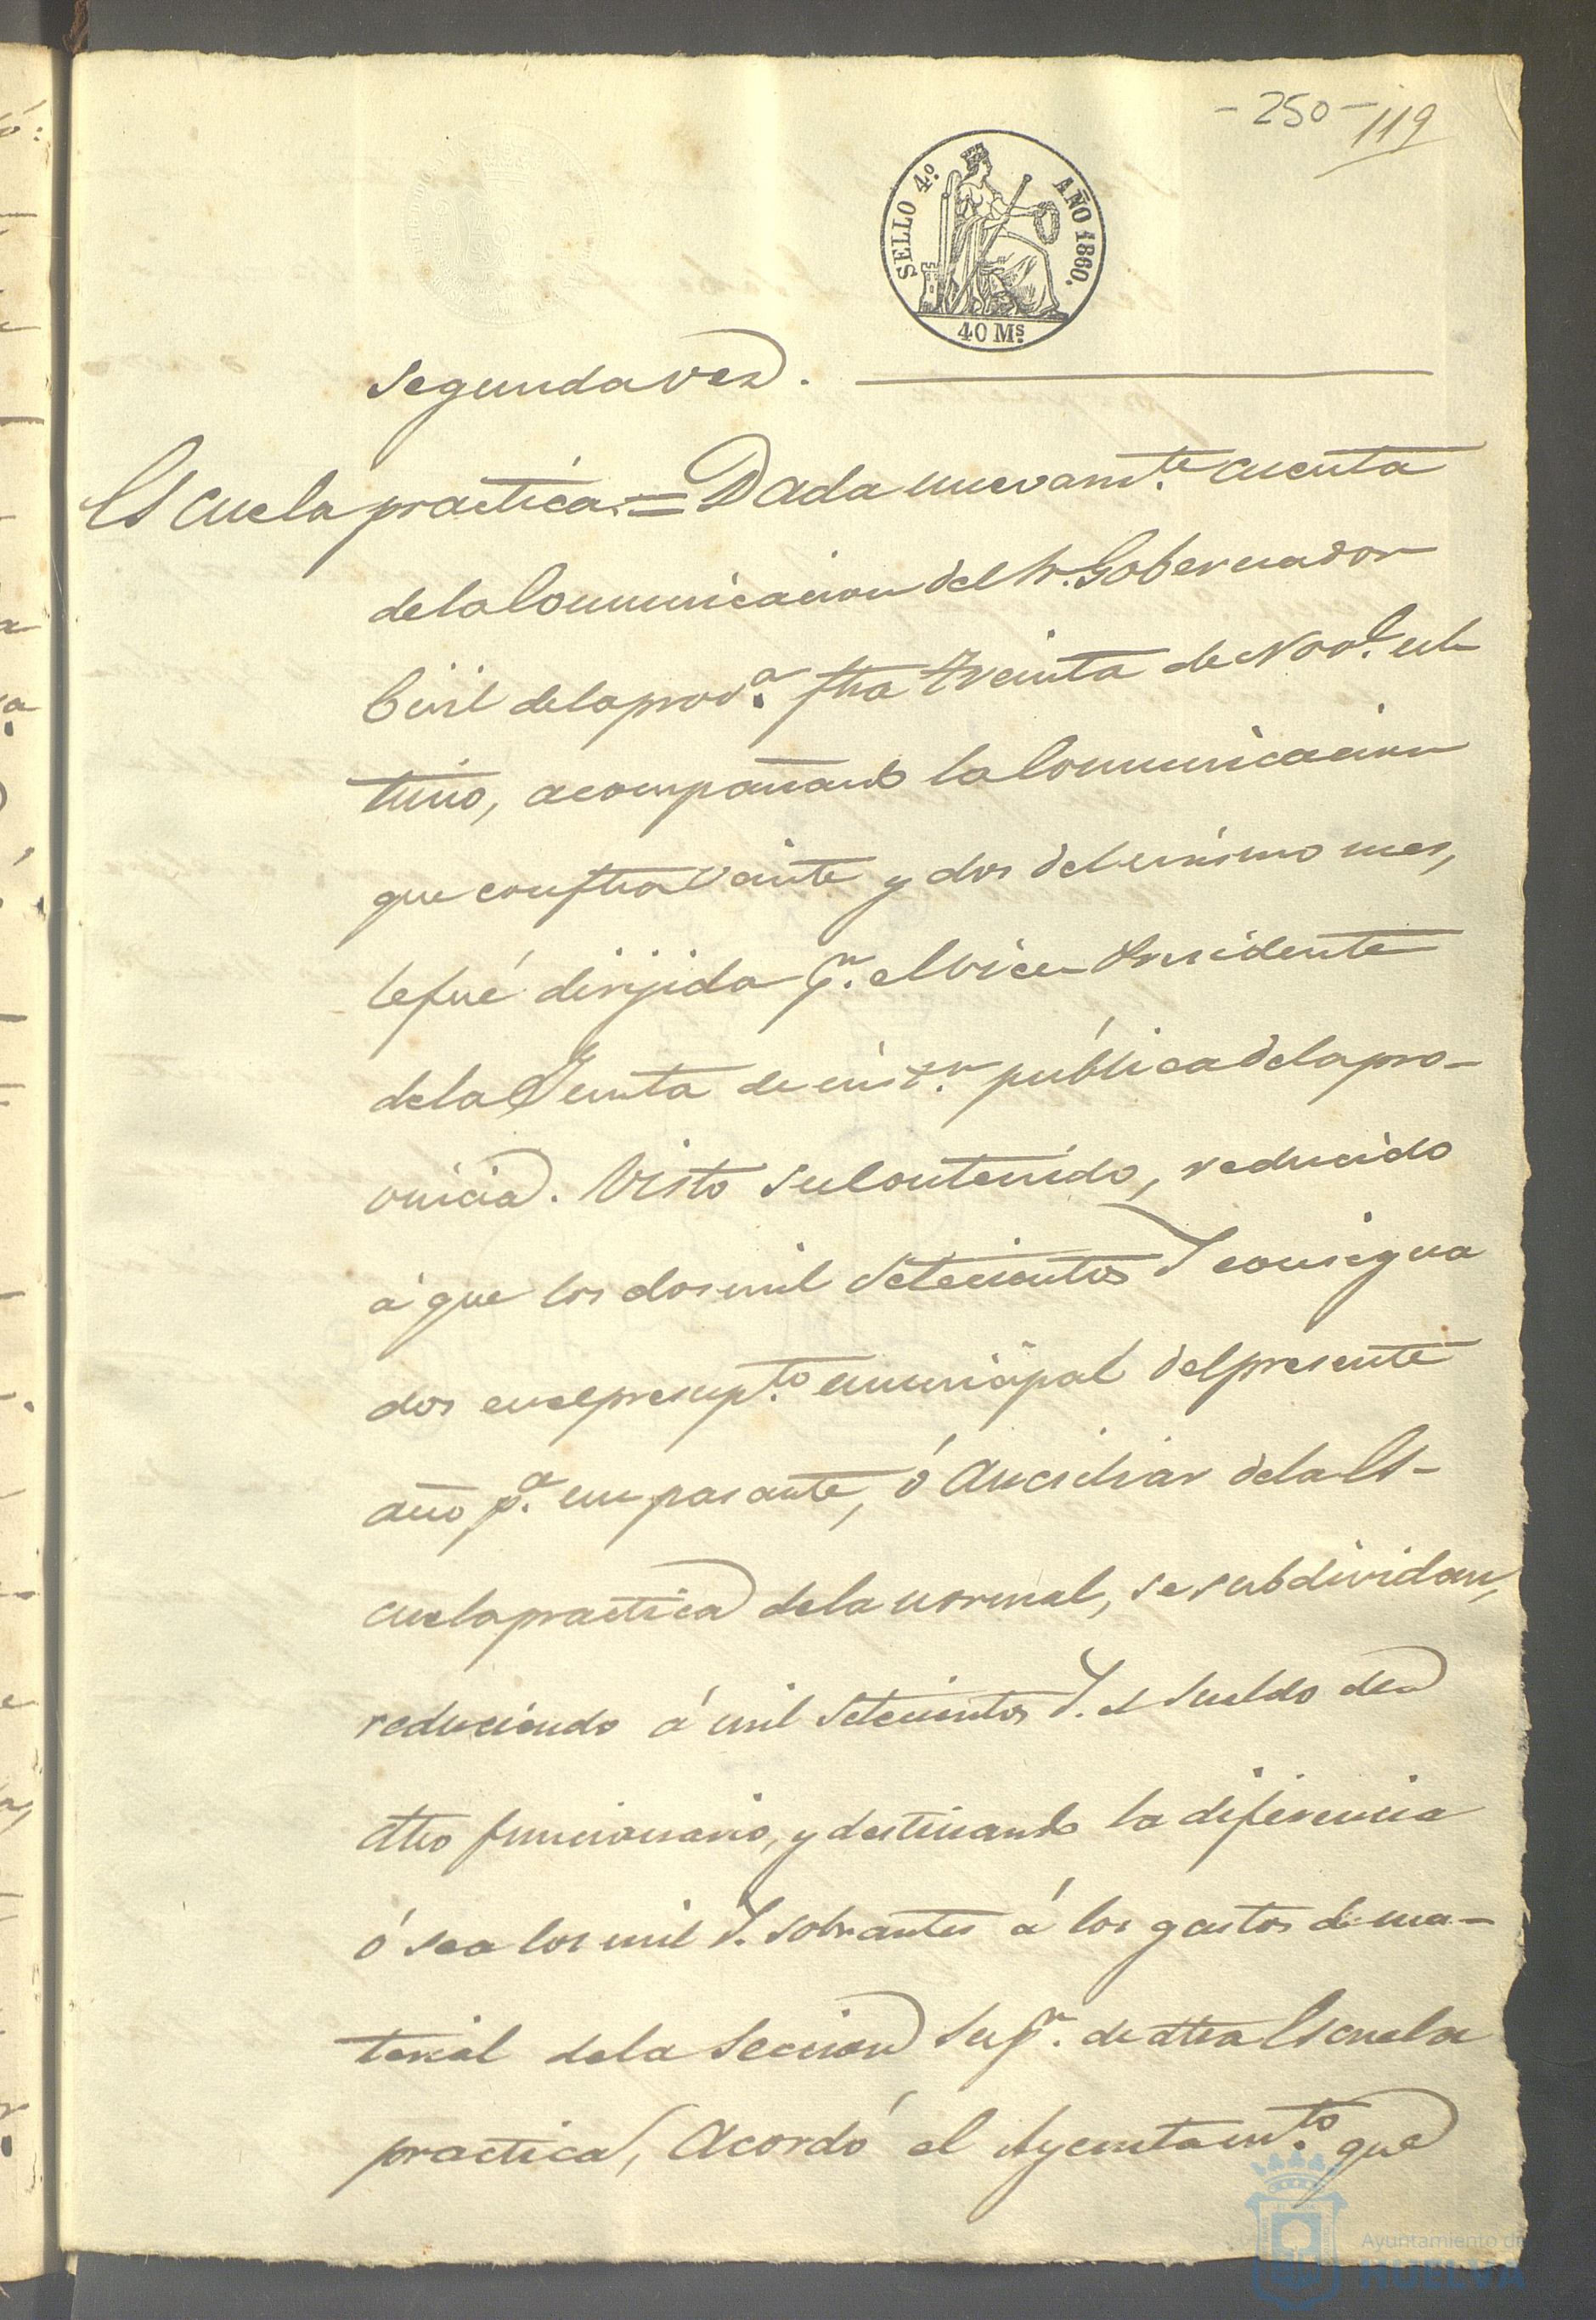 - 250 - 119
SELLO 4.º AÑO 1860.
40 Ms.
segunda vez.
Escuela práctica = Dada nuevamte. cuenta
de la Comunicacion del Sr. Gobernador
Civil de la prova. fha treinta de Nove. ul-
timo, acompañando la Comunicacion
que con fha veinte y dos del mismo mes,
le fué dirijida pr. el Vice-Presidente
de la Junta de instn. pública de la pro-
vincia. Visto su Contenido, reducido
á que los dos mil setecientos r consigna
dos en el presupto. municipal del presente
año pa. un pasante, ó Auciliar de la Es-
cuela practica de la normal, se subdividan,
reduciendo á mil setecientos r. el sueldo de
dho funcionario, y destinando la diferencia
ó sea los mil r. sobrantes á los gastos de ma-
terial de la Seccion Supr. de dha Escuela
practica, Acordó el Ayuntamto. que
Ayuntamiento de
HUELVA